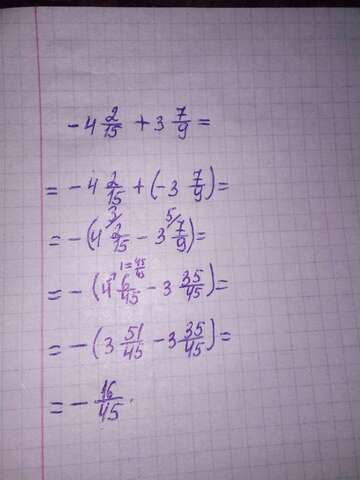 -4 2/15 + 3 7/9 =
= -4 2/15 + (-3 7/9) =
= -(4 2/15 - 3 7/9) =
= -(4 6/45 - 3 35/45) =
= -(3 51/45 - 3 35/45) =
= - 16/45